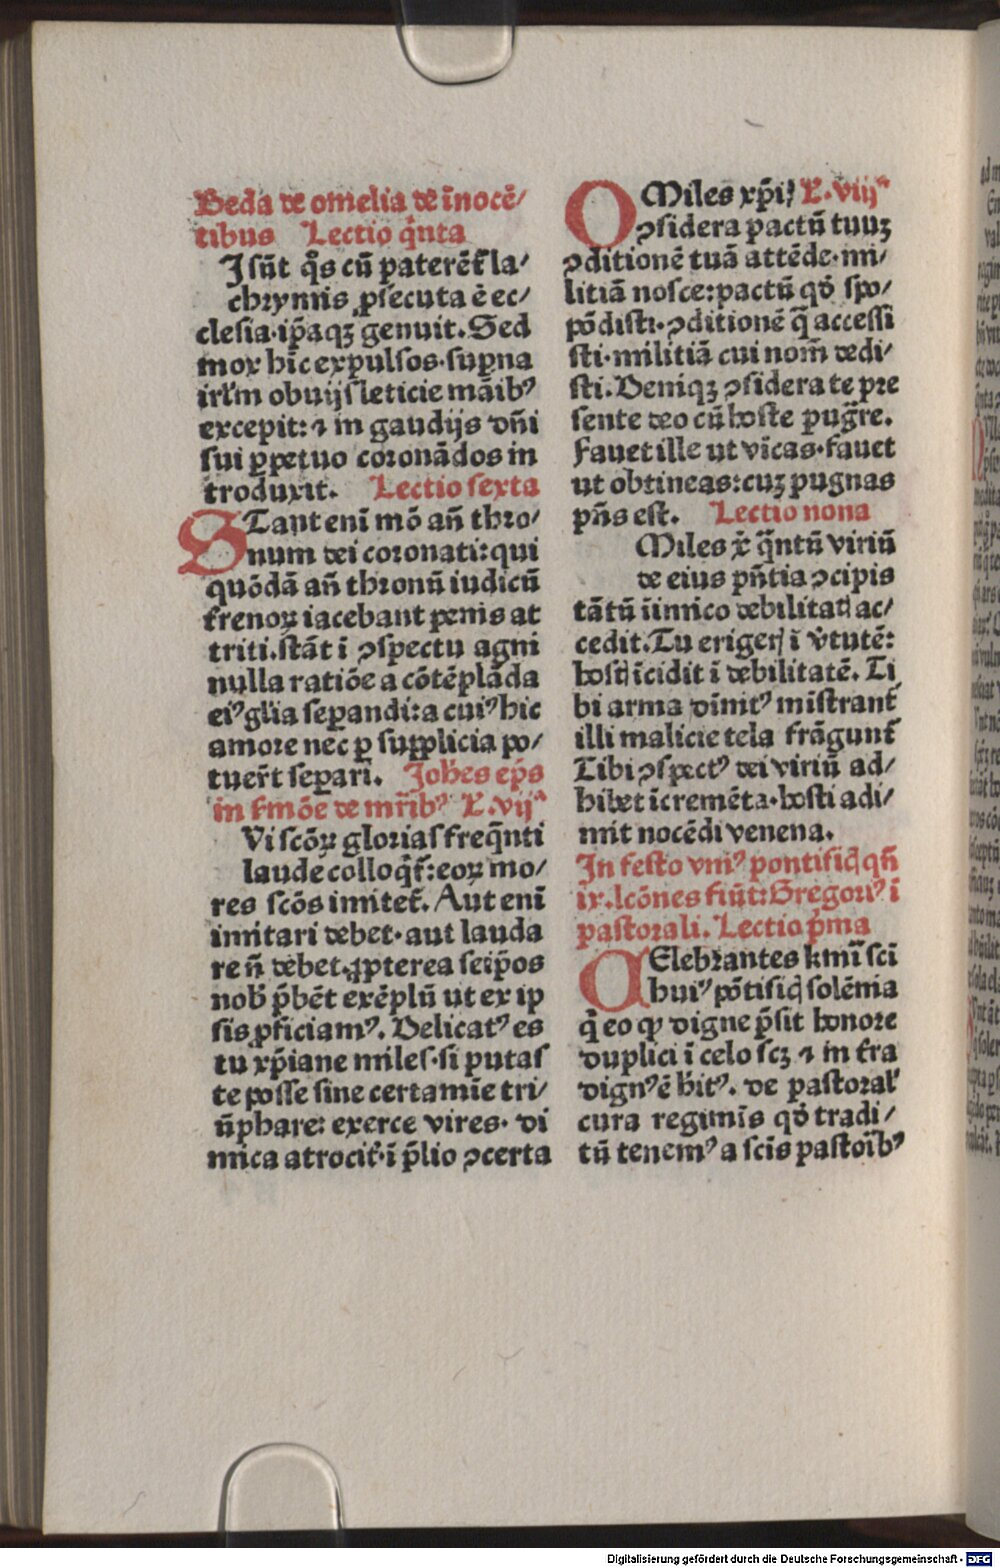 Beda de omelia de īnocē/
tibus Lectio q̇nta
I sūt q̊s cū paterēt᷑ la/
chrymis ꝓsecuta ē ec/
clesia·ip̄aqꝫ genuit. Sed
mox hīc expulsos·sup̱na
irl̄m obuijs leticie māibꝰ
excepit: ⁊ in gaudijs dn̄i
sui ꝑpetuo coronādos in
troduxit. Lectio sexta
STant eni᷑ mō an̄ thro/
num dei coronati: qui
quōdā an̄ thronū iudicū
trenoꝝ iacebant penis at
triti. stāt ī ꝯspectu agni
nulla ratiōe a cōtēplāda
eiꝰ gl̄ia seꝑandi: a cuiꝰ hic
amore nec ꝑ supplicia po/
tuer̄t seꝑari. Joh̄es ep̄s
in s̄mōe de mr̄ibꝰ L. vijᵃ
Vi scōꝝ glorias freq̄nti
laude colloq̇t᷑: eoꝝ mo/
res scōs imitet᷑. Aut eni᷑
imitari debet· aut lauda
re n̄ debet. ꝓpterea seip̄os
nob̄ p̄bēt exēplū ut ex ip
sis ꝓficiamꝰ. Delicatꝰ es
tu xp̄iane miles· si putas
te posse sine certamīe tri/
ūphare: exerce vires· di
mica atrocit᷑· ī p̄lio ꝯcerta
O Miles xp̄i L. viijᵃ
ꝯsidera pactū tuuꝫ
ꝯditionē tuā attēde· mi/
litiā nosce: pactū qd̓ spo/
pōdisti· ꝯditionē q̄ accessi
sti· militiā cui nom̄ dedi/
sti. Deniqꝫ ꝯsidera te pre
sente deo cū hoste pugr̄e.
Fauet ille ut vīcas· fauet
ut obtineas: cuꝫ pugnas
pn̄s est. Lectio nona
Miles xp̄i q̄ntū viriū
de eius pn̄tia ꝯcipis
tātū inimico debilitatꝭ ac/
cedit. Tu erigerꝭ ī v̓tutē:
hostꝭ īcidit ī debilitatē. Ti
bi arma diuinitꝰ mīstrant᷑
illi malicie tela frāgunt᷑
Tibi ꝯspectꝰ dei viriū ad/
hibet īcremēta· hosti adi/
mit nocēdi venena.
In festo vniꝰ pontificꝭ qn̄
ix. lcōnes fiūt: Gregoriꝰ ī
pastorali. Lectio p̓ma
CElebrantes kmī sci᷑
huiꝰ pōtificꝭ solēnia
q̇ eo ꝙ digne p̄sit honore
duplici ī celo scꝫ ⁊ in t᷑ra
dignꝰ ē h̄itꝰ. de pastoral᷑
cura regimīs qd̓ tradi/
tū tenemꝰ a scīs pastoribꝰ
Digitalisierung gefördert durch die Deutsche Forschungsgemeinschaft - DFG